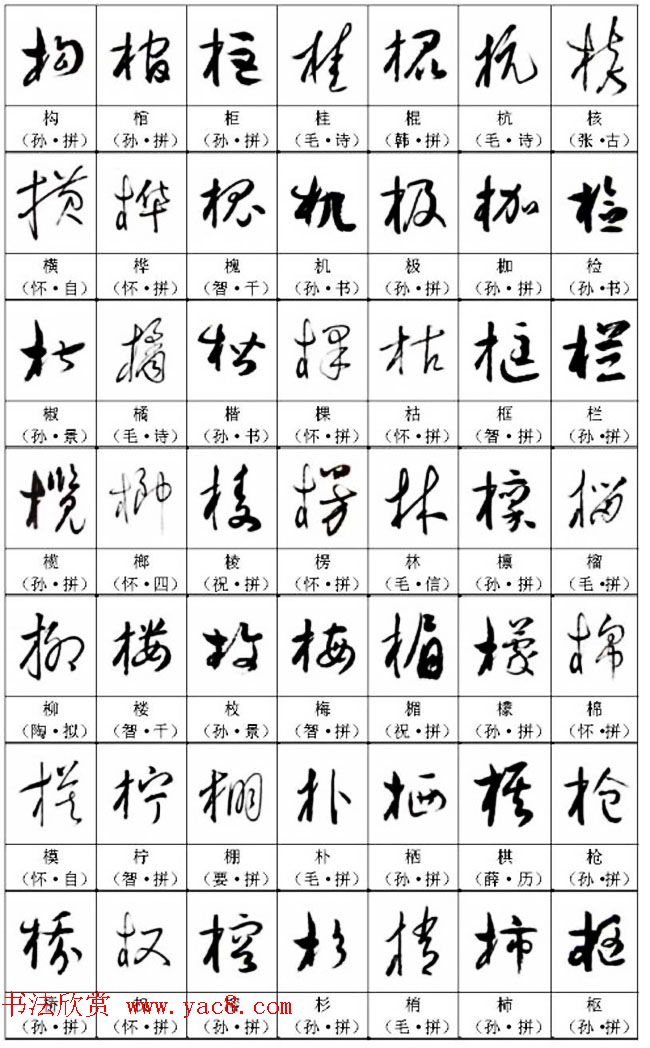 构 棺 柜 桂 棍 杭 核
(孙·拼) (孙·拼) (孙·拼) (毛·诗) (韩·拼) (毛·诗) (张·古)
横 桦 槐 机 极 枷 检
(怀·自) (怀·拼) (智·千) (孙·书) (孙·拼) (孙·拼) (孙·书)
椒 橘 楷 棵 枯 框 栏
(孙·景) (毛·诗) (孙·书) (怀·拼) (怀·拼) (智·拼) (孙·拼)
榄 榔 棱 楞 林 檩 榴
(孙·拼) (怀·四) (祝·拼) (怀·拼) (毛·信) (孙·拼) (毛·拼)
柳 楼 枚 梅 楣 檬 棉
(陶·拟) (智·千) (孙·景) (智·拼) (祝·拼) (孙·拼) (怀·拼)
模 柠 棚 朴 栖 棋 枪
(怀·自) (智·拼) (要·拼) (毛·拼) (孙·拼) (薛·历) (孙·拼)
书法欣赏 www.yac8.com
杉 梢 柿 枢
(孙·拼) (怀·拼) (孙·拼) (孙·拼) (毛·拼) (孙·拼) (孙·拼)